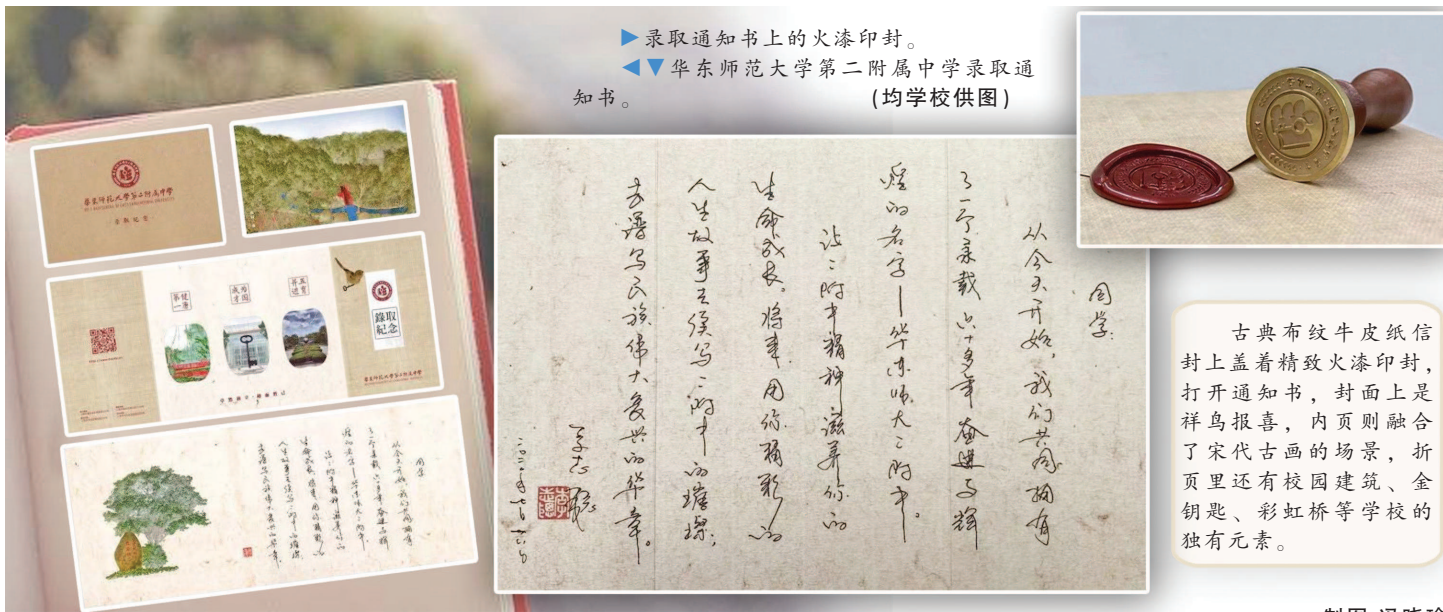 ▶录取通知书上的火漆印封。
◀▼华东师范大学第二附属中学录取通
知书。 (均学校供图)
華東師範大學第二附屬中學
录取纪念
第一
使命
成才
为国
并进
五育
錄取
紀念
華東師範大學第二附屬中學
同学:
从今天开始,我们共同拥有
了一个承载六十多年奋进与辉
煌的名字—华东师大二附中。
让二附中精神滋养你的
生命成长。将来,用你精彩的
人生故事去续写二附中的璀璨,
去谱写民族伟大复兴的华章。
古典布纹牛皮纸信
封上盖着精致火漆印封,
打开通知书,封面上是
祥鸟报喜,内页则融合
了宋代古画的场景,折
页里还有校园建筑、金
钥匙、彩虹桥等学校的
独有元素。